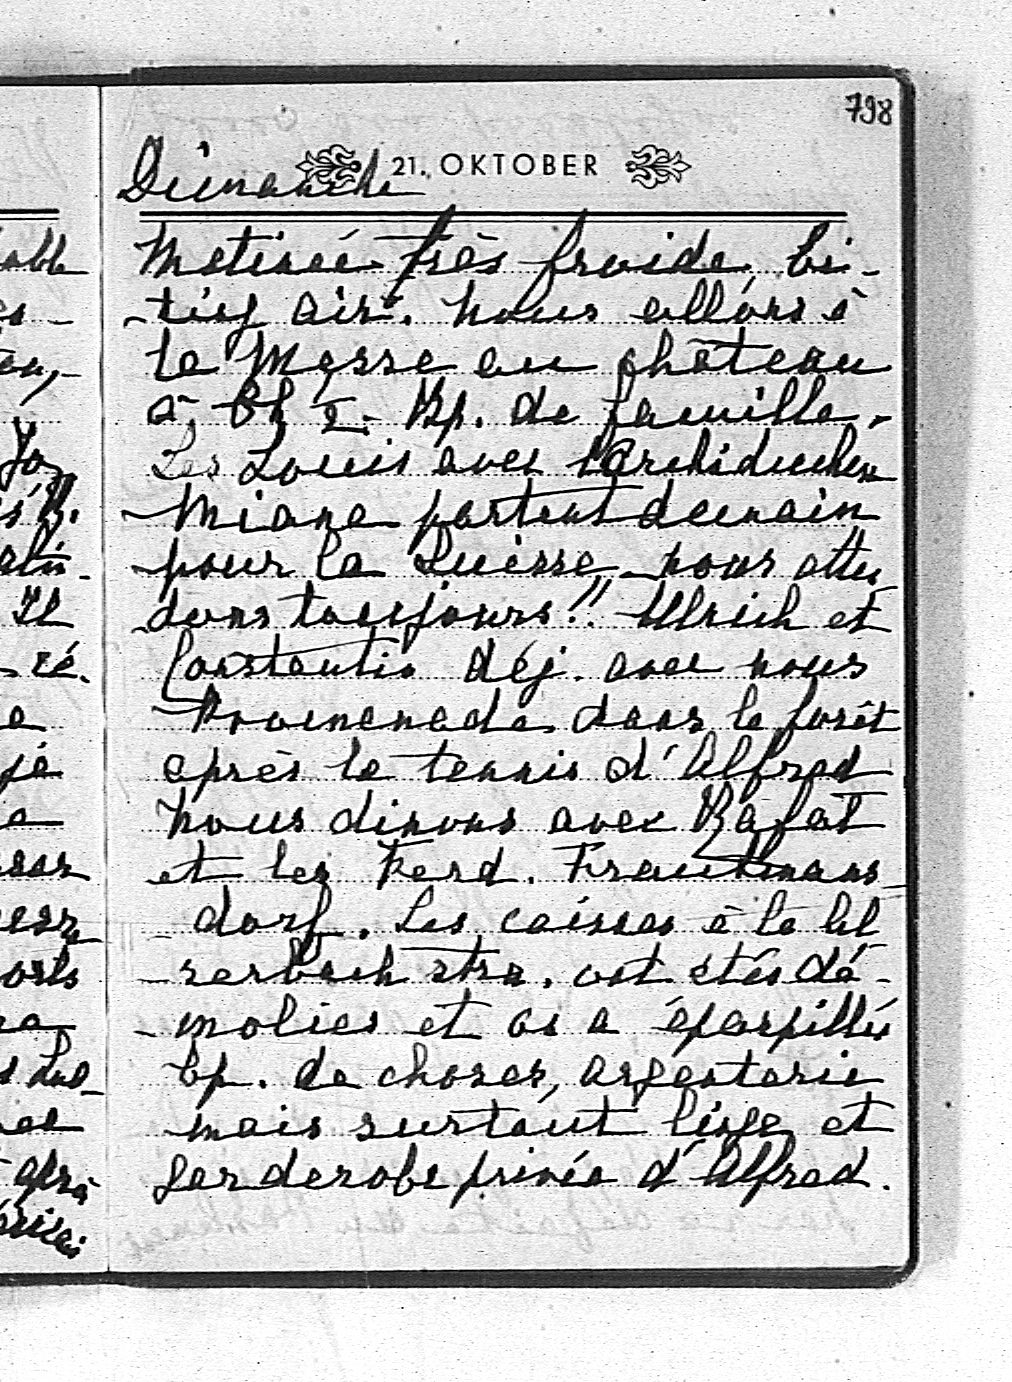 798
21. OKTOBER
Dimanche
Matinée très froide, bi-
ting air. Nous allons à
la Messe au château
à 8h ½. Bp. de famille.
Les Louis avec l'Archiduchesse
Miana partent demain
pour la Suisse, nous atten-
dons toujours!! Ulrich et
Constantin déj. avec nous
Promenade dans la forêt
après le tennis d'Alfred
Nous dinons avec
et les Ferd. Trauttmans-
dorf. Les caisses à la
strs. ont étés dé-
molies et on a éparpillés
bp. de choses, argenterie
mais surtout linge et
garderobe privée d'Alfred.